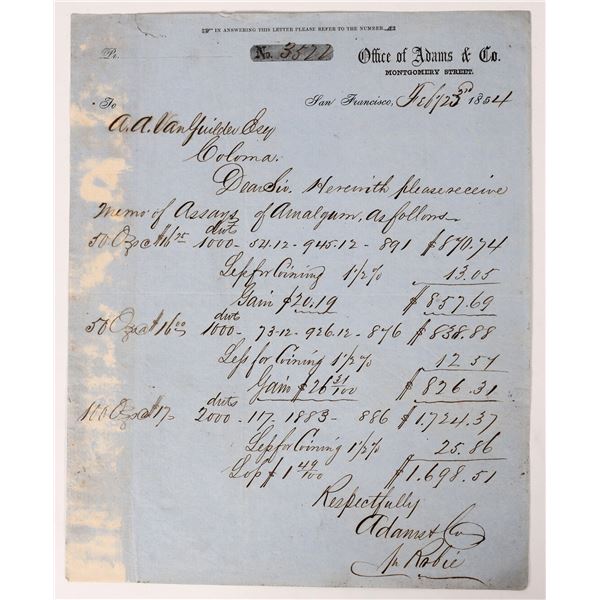 IN ANSWERING THIS LETTER PLEASE REFER TO THE NUMBER
Pr. No. 3522 Office of Adams & Co.
MONTGOMERY STREET.
San Francisco, Feby 23rd 1854
To
A. A. Van Guilder Esq
Coloma.
Dear Sir. Herewith please receive
Memo of Assays of Amalgum, as follows
50 Ozs at 16 25 dwt 1000 - 54.12 - 945.12 - 891 $870.74
Less for Coining 1 1/2 % 13.05
Gain $20.19 $857.69
50 Ozs at 16 00 dwt 1000 - 73.12 - 926.12 - 876 $838.88
Less for Coining 1 1/2 % 12.57
Gain $26 31/100 $826.31
100 Ozs at 17 dwts 2000 - 117. 1883 - 886 $1.724.37
Less for Coining 1 1/2 % 25.86
Loss $1 49/100 $1.698.51
Respectfully
Adams & Co